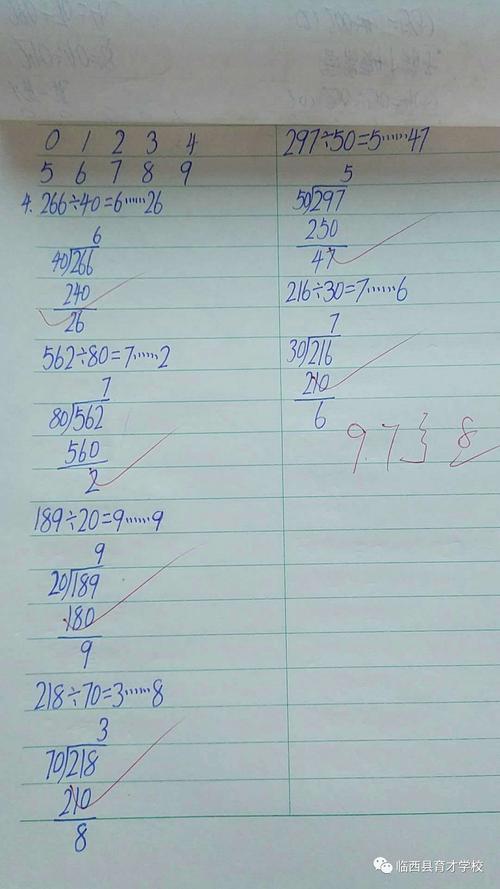 0 1 2 3 4
5 6 7 8 9
4. 266÷40=6……26
6
40266
240
26
562÷80=7……2
7
80562
560
2
189÷20=9……9
9
20189
180
9
218÷70=3……8
3
70218
210
8
297÷50=5……47
5
50297
250
47
216÷30=7……6
7
30216
210
6
9.7
8
临西县育才学校